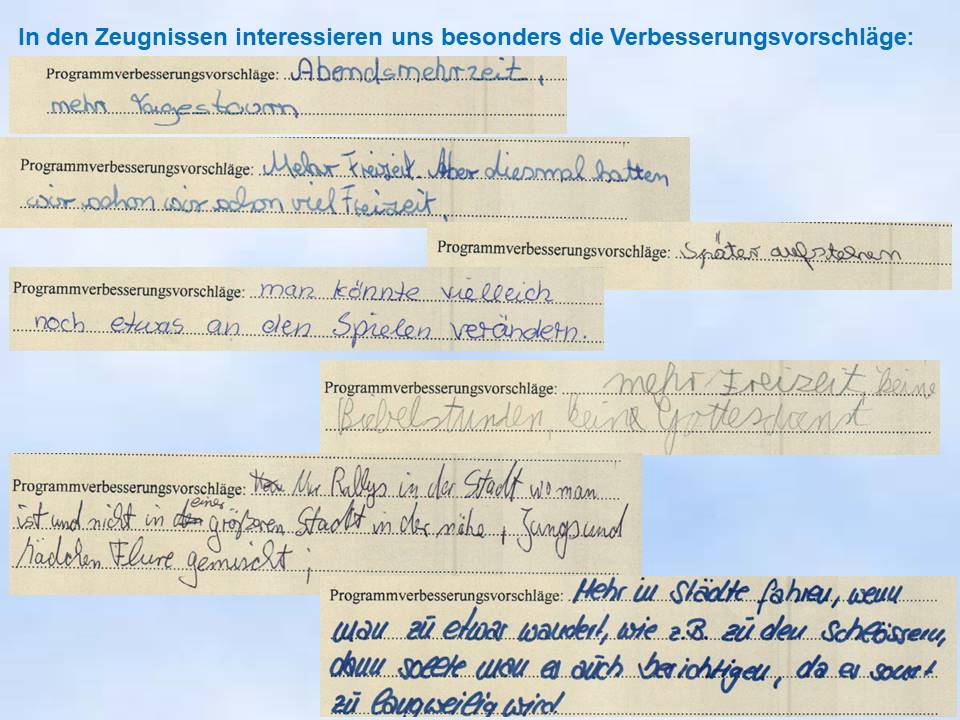 In den Zeugnissen interessieren uns besonders die Verbesserungsvorschläge:
Programmverbesserungsvorschläge: Abendsmehrzeit,
mehr Tagestourn
Programmverbesserungsvorschläge: Mehr Freizeit. Aber diesmal hatten
wir schon wir schon viel Freizeit.
Programmverbesserungsvorschläge: Später aufstehen
Programmverbesserungsvorschläge: man könnte vielleich
noch etwas an den Spielen verändern.
Programmverbesserungsvorschläge: mehr Freizeit, keine
Biebelstunden, keine Gottesdienst
Programmverbesserungsvorschläge: Nur Rallys in der Stadt wo man
ist und nicht in einer größeren Stadt in der nähe, Jungs und
Mädchen Flure gemischt;
Programmverbesserungsvorschläge: Mehr in Städte fahren, wenn
man zu etwas wandert, wie z.B. zu den Schlössern,
dann sollte man es auch besichtigen, da es sonst
zu langweilig wird